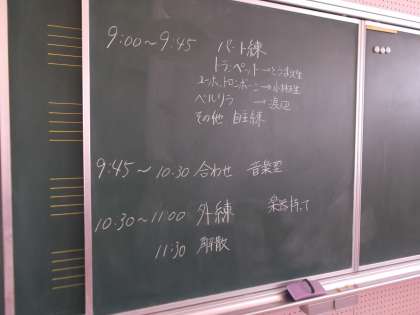 9:00〜9:45 パート練
トランペット→
ユーフォ、トロンボーン→小林先生
ベルリラ →渡辺
その他 自主練
9:45〜10:30 合わせ 音楽室
10:30〜11:00 外練 楽器持って
11:30 解散